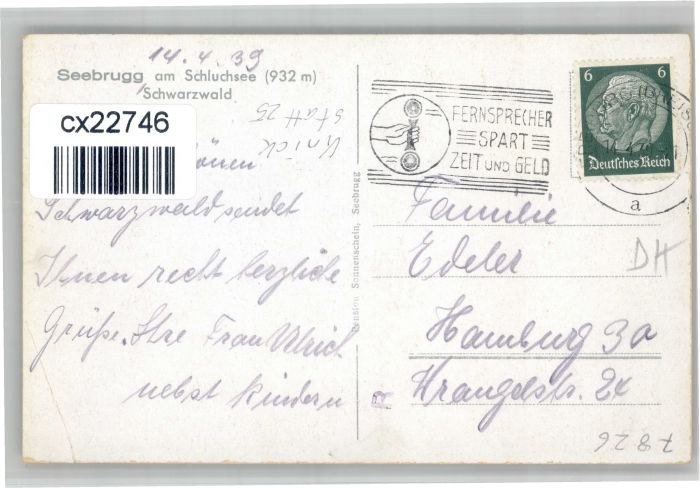 14.4.39
Seebrugg am Schluchsee (932 m)
Schwarzwald
cx22746
Knick
statt 25
schönen
Schwarzwald sendet
Ihnen recht herzliche
Grüße. Ihre Frau Ulrich
nebst Kindern
Pension Sonnenschein, Seebrugg
FERNSPRECHER
SPART
ZEIT UND GELD
6 6
Deutsches Reich
a
Familie
Edeler
Hamburg 30
Wrangelstr. 24
DH
R
7826